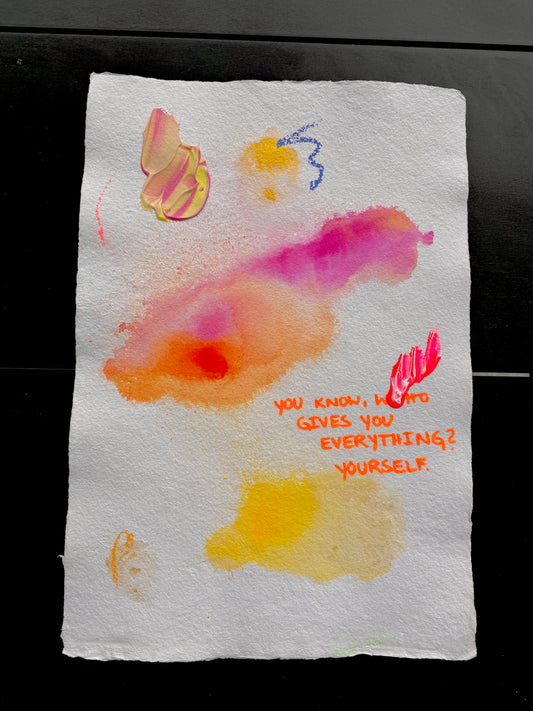 YOU KNOW, WHO
GIVES YOU
EVERYTHING?
YOURSELF.